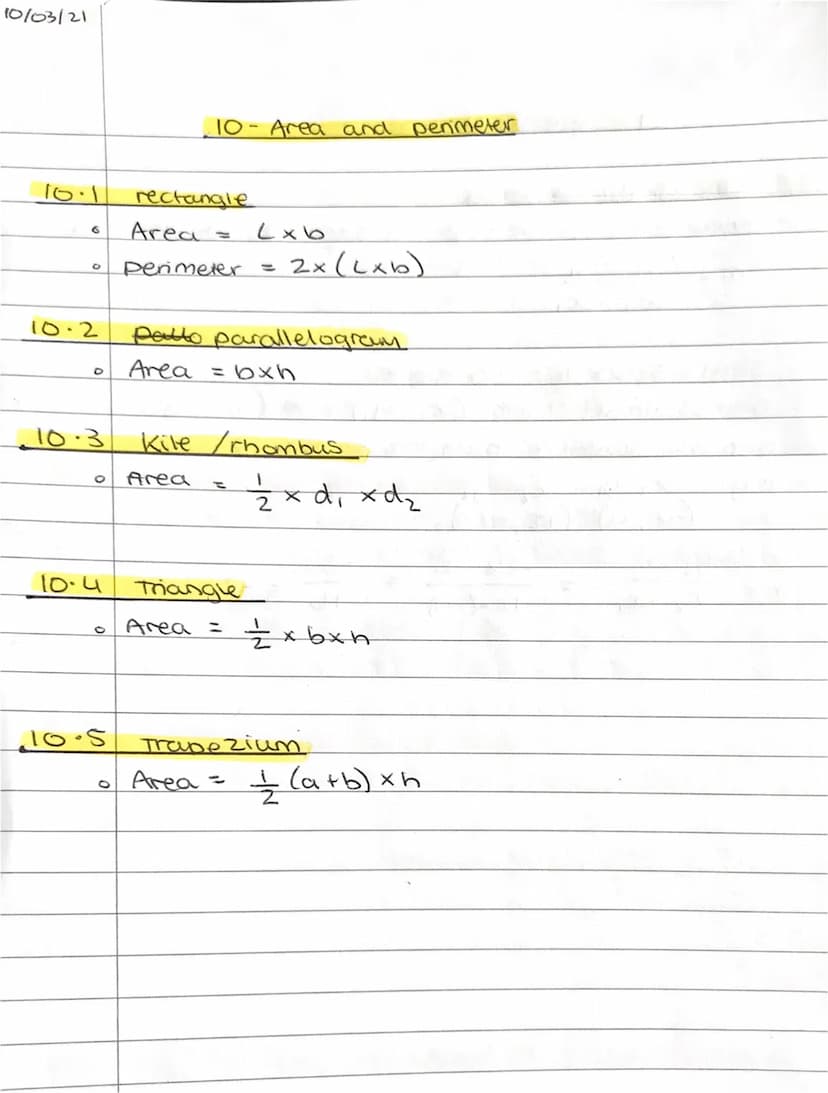 10/03/21
10 - Area and perimeter
10.1 rectangle
◦ Area = L×b
◦ perimeter = 2×(L×b)
10.2 parallelogram
◦ Area = b×h
10.3 Kite /rhombus
◦ Area = 1/2 × d₁ × d₂
10.4 Triangle
◦ Area = 1/2 × b×h
10.5 Trapezium
◦ Area = 1/2 (a+b) × h